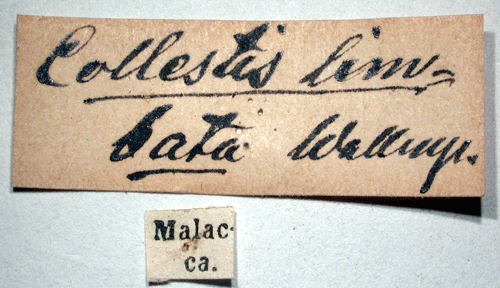 Collestis lim-
bata Wallengr.
Malac-
ca.